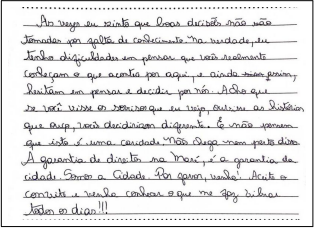 Às vezes eu sinto que boas decisões não são
tomadas por falta de conhecimento. Na verdade, eu
tenho dificuldades em pensar que vocês realmente
conheçam o que acontece por aqui, e ainda assim,
hesitam em pensar e decidir por nós. Acho que
se você visse os sorrisos que eu vejo, ouvisse as histórias
que ouço, vocês decidiriam diferente. E não pensem
que isto é uma caridade. Não chega nem perto disso.
A garantia de direitos na Maré, é a garantia da
cidade. Somos a Cidade. Por favor, venha! Aceite o
convite e venha conhecer o que me faz vibrar
todos os dias!!!